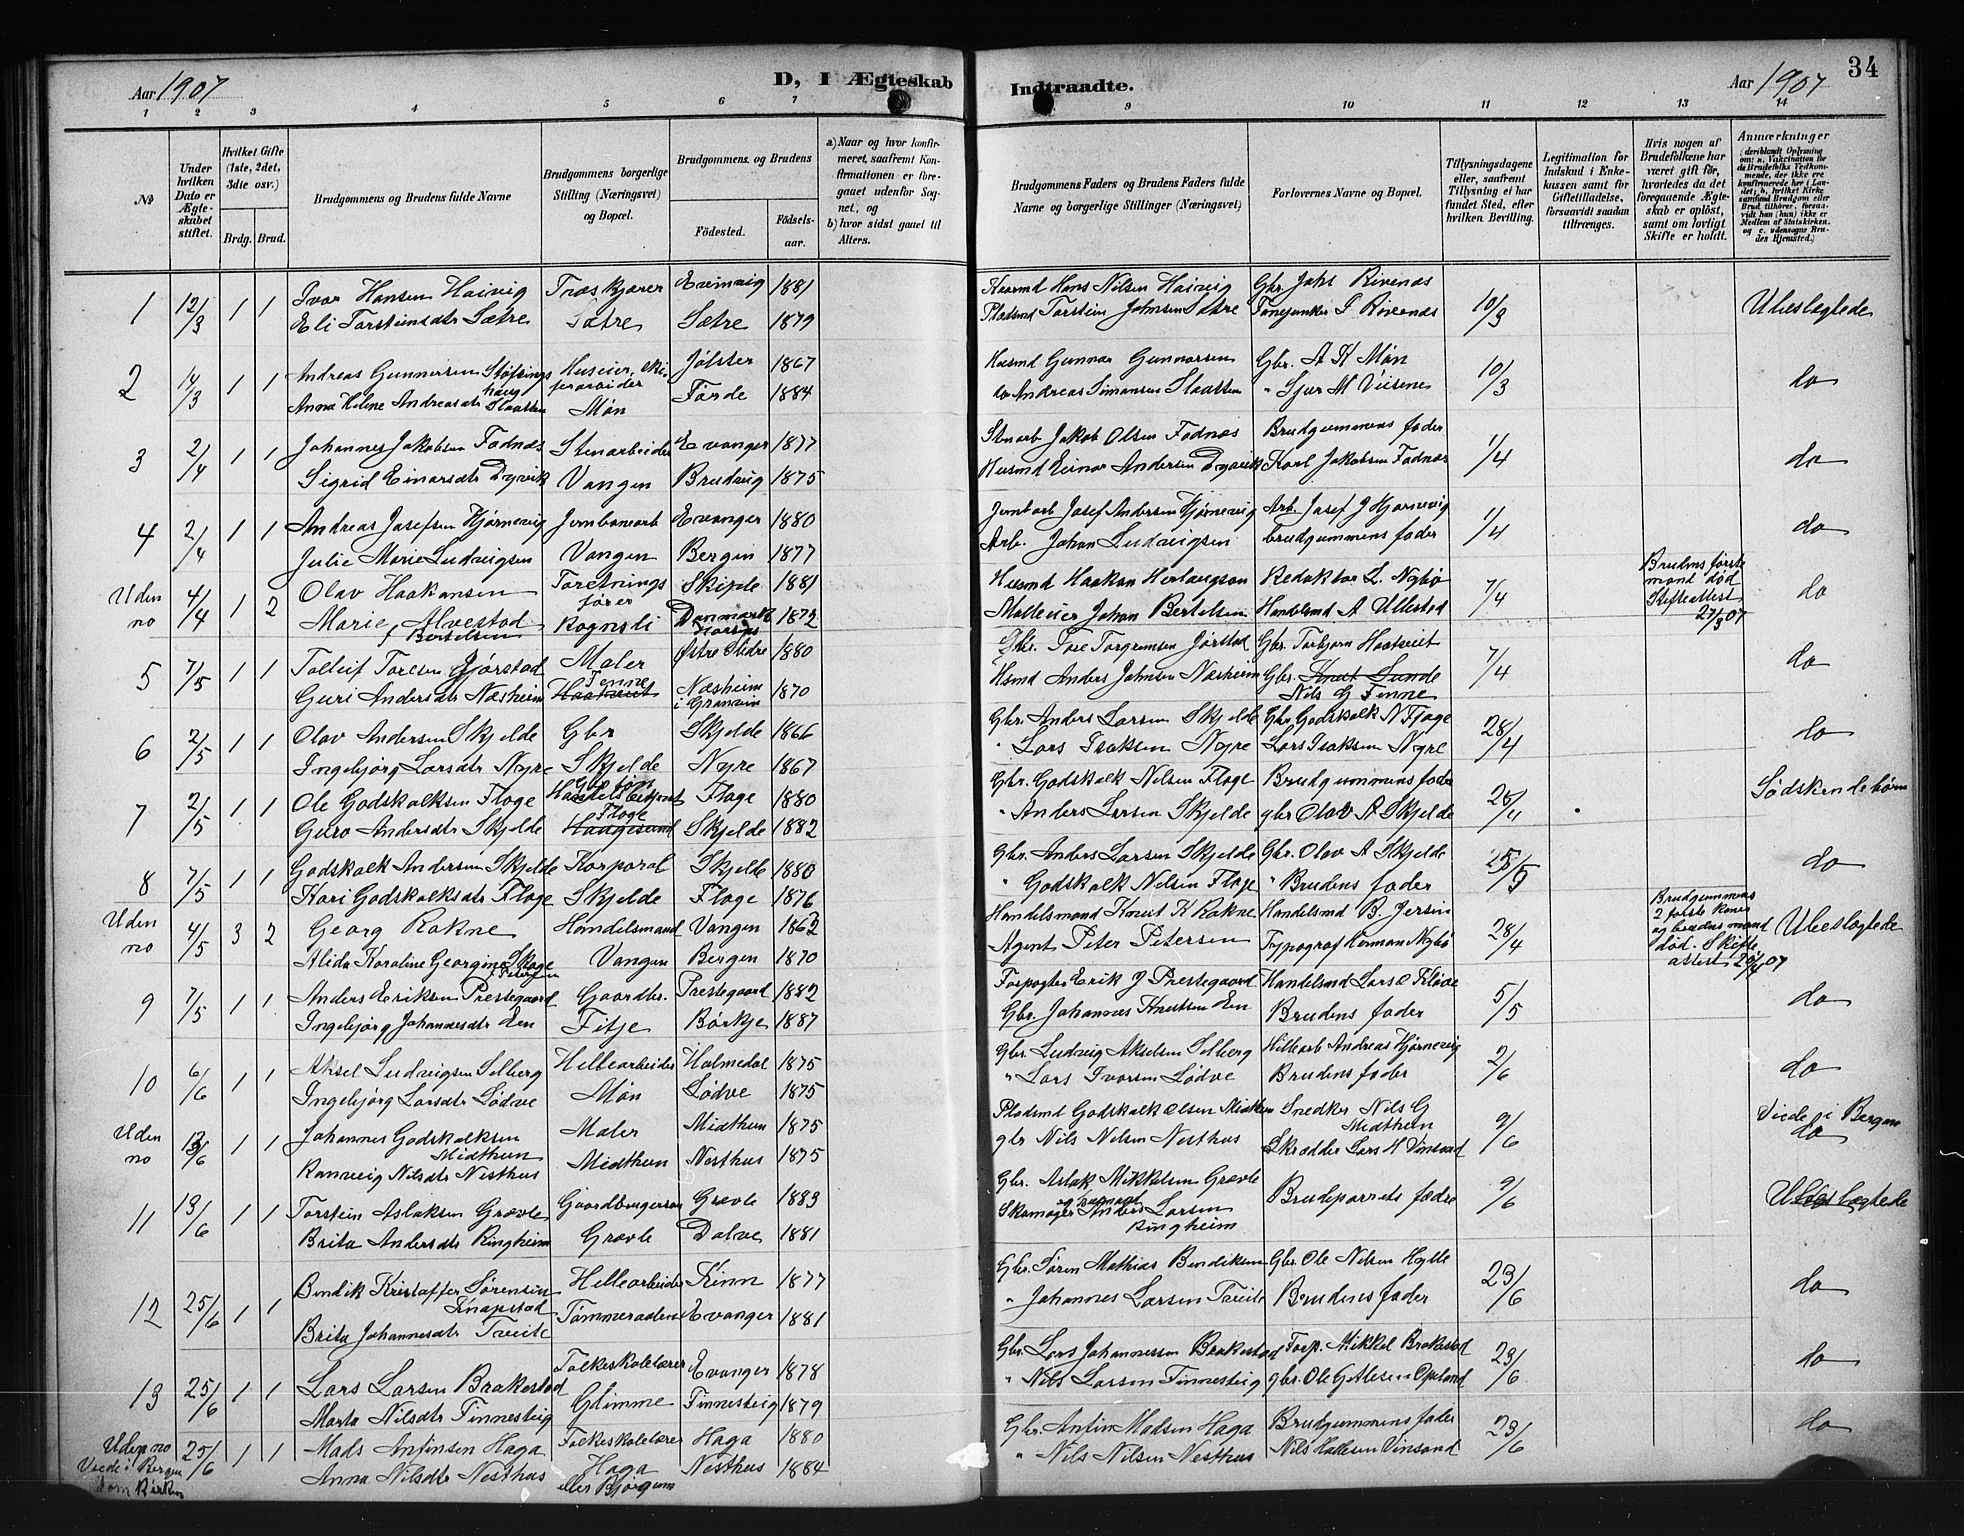 Aar 1907
D, I Ægteskab
Indtraadte.
Aar 1907
34
1 2 3 4 5 6 7
9 10 11 12 13 14
No
Under hvilken Dato er Ægteskabet stiftet.
Hvilket Gifte (1ste, 2det, 3die osv.)
Brdg. Brud.
Brudgommens og Brudens fulde Navne
Brudgommens borgerlige Stilling (Næringsvei) og Bopæl.
Brudgommens. og Brudens
Fødested.
Fødsels-aar.
a) Naar og hvor konfirmeret, saafremt Konfirmationen er foregaaet udenfor Sognet, og
b) hvor sidst gaaet til Alters.
Brudgommens Faders og Brudens Faders fulde Navne og borgerlige Stillinger (Næringsvei)
Forlovernes Navne og Bopæl.
Tillysningsdagene eller, saafremt Tillysning ei har fundet Sted, efter hvilken Bevilling.
Legitimation for Indskud i Enkekassen samt for Giftetilladelse, forsaavidt saadan tiltrænges.
Hvis nogen af Brudefolkene har været gift før, hvorledes da det foregaaende Ægteskab er opløst, samt om lovligt Skifte er holdt.
Anmærkninger
1 12/3 1 1 Ivar Hansen Haivig Træskjærer Evenvig 1881 Hans Nilsen Haivig Gbr Johs Rivenæs 10/3 Ubeslægtede
Eli Torsteinsdtr Sætre Sætre Sætre 1879 Pladsmd Torstein Johnsen Sætre Fanejunker Rivenæs
2 14/3 1 1 Andreas Gunnarsen Støfringshaug Huseier, Jølster 1867 Husmd Gunnar Gunnarsen Gbr. A K Møn 10/3 do
Anna Heline Andreasdtr Slaatten Møn Førde 1884 do Andreas Simonsen Slaatten " Sjur M Veisene
3 2/4 1 1 Johannes Jakobsen Fadnæs Stenarbeider Evanger 1877 Stenarb Jakob Olsen Fadnæs Brudgummens fader 1/4 do
Sigrid Einarsdtr Dyrvik Vangen Brudvig 1875 Husmd Einar Andersen Dyrvik Karl Jakobsen Fadnæs
4 2/4 1 1 Andreas Josefsen Hjørnevig Jernbanearb Evanger 1880 Jernbarb Josef Andersen Hjørnevig Arb. Josef J Hjørnevig 1/4 do
Julie Marie Ludvigsen Vangen Bergen 1877 Arb. Johan Ludvigsen brudgummens fader
Uden no 4/4 1 2 Olav Haakonsen Forretningsfører 1881 Husmd Haakon Herlaugson Redaktør L. Nybø 7/4 Brudens første mand død Skifteattest 27/3 07 do
Marie Alvestad f Bertelsen Rognsli Danmark 1872 Mølleeier Johan Bertelsen Handelsmd A Ullestad
5 7/5 1 1 Tolleif Toresen Jørstad Maler Østre Slidre 1880 Gbr. Tore Torgrimsen Jørstad Gbr. Torbjørn Haatveit 7/4 do
Guri Andersdtr Næsheim Finne Haatveit Næsheim i Granvin 1870 Husmd Anders Johnsen Næsheim Gbr. Knut Lunde Nils G Finne
6 2/5 1 1 Olav Andersen Skjelde Gbr Skjelde 1866 Gbr. Anders Larsen Skjelde Gbr Godskalk N Flage 28/4 do
Ingebjørg Larsdtr Nyre Skjelde Nyre 1867 " Lars Isaksen Nyre Lars Isaksen Nyre
7 2/5 1 1 Ole Godskalksen Flage Flage 1880 Gbr. Godskalk Nilsen Flage Brudgummens fader 28/4 Sødskendebørn
Guro Andersdtr Skjelde Flage Haagesund Skjelde 1882 " Anders Larsen Skjelde gbr Olav A Skjelde
8 7/5 1 1 Godskalk Andersen Skjelde Korporal Skjelde 1880 Gbr. Anders Larsen Skjelde Gbr. Olav A Skjelde do
Kari Godskalksdtr Flage Skjelde Flage 1876 " Godskalk Nilsen Flage " Brudens fader
Uden no 4/5 3 2 Georg Rokne Handelsmand Vangen 1862 Handelsmand Knut K Rokne Handelsmd B. Jersin 28/4 Brudgummens 2 første koner og brudens mand død. Skifteattest 20/4 07 Ubeslægtede
Alida Karoline Georgine Skage f Petersen Vangen Bergen 1870 Agent Peter Petersen Typograf Herman Nybø
9 7/5 1 1 Anders Eriksen Prestegaard Gaardbr. Prestegaard 1882 Forpagter Erik J Prestegaard Handelsmd Lars E Kløve 5/5 do
Ingebjørg Johannesdtr Een Fitje Børkje 1887 Gbr. Johannes Knutsen Een Brudens fader
10 6/6 1 1 Aksel Ludvigsen Selberg Hellearbeider Holmedal 1875 Gbr. Ludvig Akselsen Selberg Hellearb Andreas Hjørnevig 2/6 do
Ingebjørg Larsdtr Lødve Møn Lødve 1875 " Lars Ivarsen Lødve Brudens fader
Uden no 13/6 1 1 Johannes Godskalksen Midthun Maler Midthun 1875 Pladsmd Godskalk Olsen Midthun Snedker Nils G Midthun 9/6 Viede i Bergen do
Ranveig Nilsdtr Nesthus Midthun Nesthus 1875 gbr Nils Nilsen Nesthus Skrædder Lars H Vinsand
11 13/6 1 1 Torstein Aslaksen Grøvle Gaardbrugerson Grøvle 1883 Gbr. Aslak Mikkelsen Grøvle Brudeparrets fædre 9/6 Ubeslægtede
Brita Andersdtr Ringheim Grøvle Dalve 1881 Skomager Anders Larsen Ringheim
12 25/6 1 1 Bendik Kristoffer Sørensen Knapstad Hellearbeider Kinn 1877 Gbr. Søren Mathias Bendiksen Gbr. Ole Nelsen Hylle 23/6 do
Brita Johannesdtr Tveite Tømmeraalen Evanger 1881 " Johannes Larsen Tveite Brudens fader
13 25/6 1 1 Lars Larsen Brakestad Folkeskolelærer Evanger 1878 Gbr. Lars Johannessen Brakestad Forp. Mikkel Brakestad 23/6 do
Marta Nilsdtr Finnesteig Glimme Finnesteig 1879 " Nils Larsen Finnesteig gbr. Ole Gitlesen Opeland
Uden no 25/6 1 1 Mads Anfinsen Haga Folkeskolelærer Haga 1880 Gbr. Anfinn Madsen Haga Brudgummens fader 23/6 do
Viede i Bergen Domkirken Anna Nilsdtr Nesthus Haga eller Bjørgum Nesthus 1884 " Nils Nilsen Nesthus Nils Hallesen Vinsand